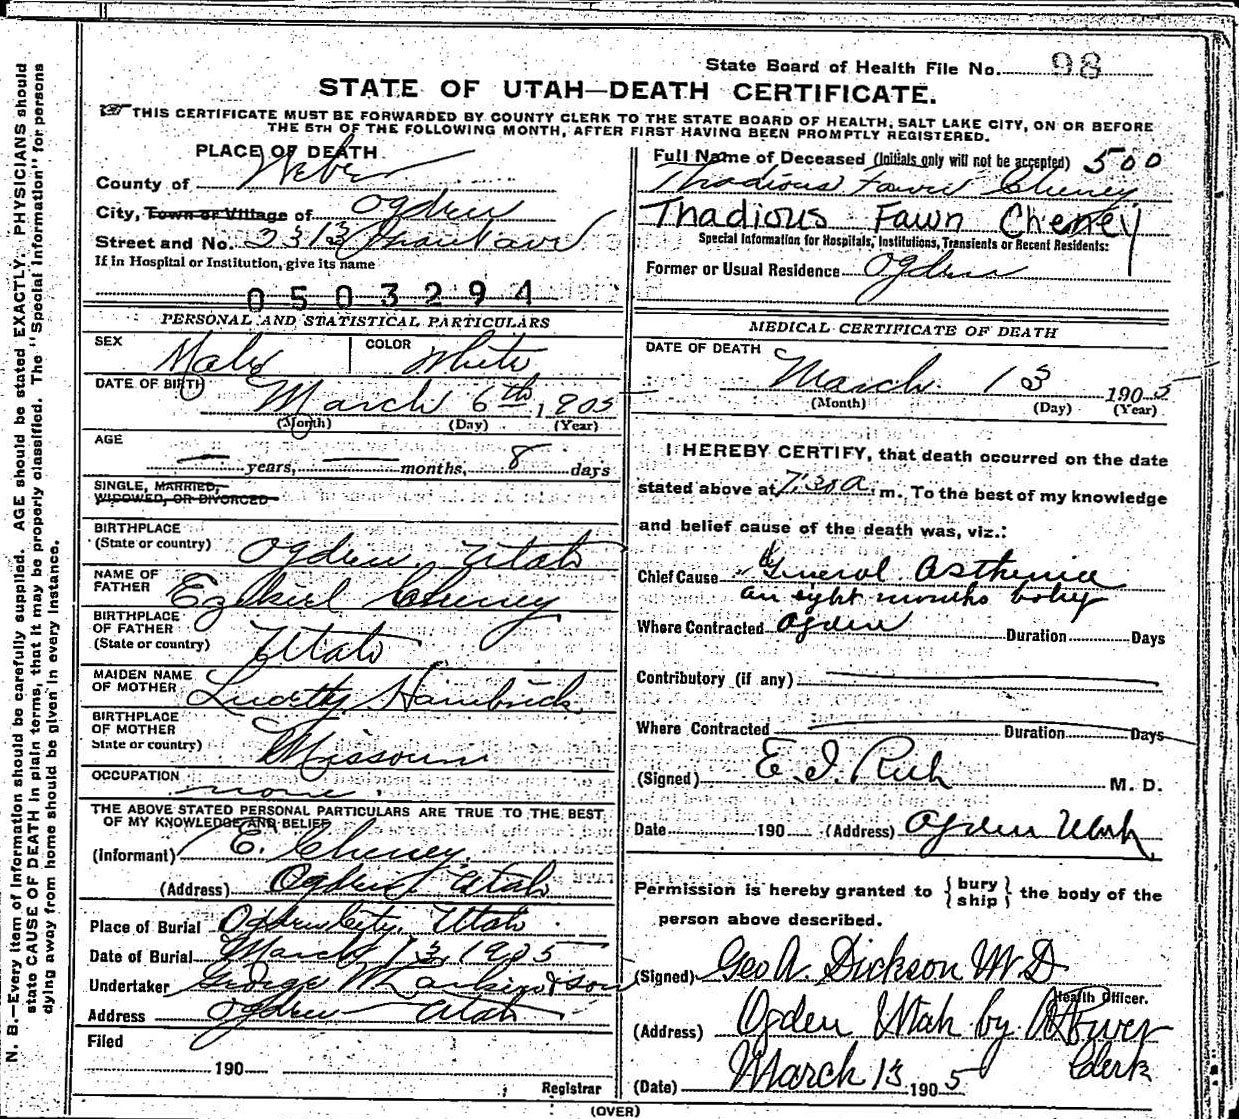 State Board of Health File No. 98
STATE OF UTAH—DEATH CERTIFICATE.
THIS CERTIFICATE MUST BE FORWARDED BY COUNTY CLERK TO THE STATE BOARD OF HEALTH, SALT LAKE CITY, ON OR BEFORE
THE 5TH OF THE FOLLOWING MONTH, AFTER FIRST HAVING BEEN PROMPTLY REGISTERED.
PLACE OF DEATH
County of Weber
City, Town or Village of Ogden
Street and No. 3313 Grant ave
If in Hospital or Institution, give its name
0503294
Full Name of Deceased (Initials only will not be accepted) 500
Thadious Fawn Cheney
Thadious Fawn Cheney
Special Information for Hospitals, Institutions, Transients or Recent Residents:
Former or Usual Residence Ogden
PERSONAL AND STATISTICAL PARTICULARS
SEX Male COLOR White
DATE OF BIRTH
March 6th, 1905
(Month) (Day) (Year)
AGE
— years, — months, 8 days
SINGLE, MARRIED,
WIDOWED, OR DIVORCED
BIRTHPLACE
(State or country) Ogden, Utah
NAME OF
FATHER Ezekiel Cheney
BIRTHPLACE
OF FATHER
(State or country) Utah
MAIDEN NAME
OF MOTHER Hambrick
BIRTHPLACE
OF MOTHER
State or country) Missouri
OCCUPATION
none.
THE ABOVE STATED PERSONAL PARTICULARS ARE TRUE TO THE BEST
OF MY KNOWLEDGE AND BELIEF
(Informant) E. Cheney.
(Address) Ogden, Utah
Place of Burial Ogden City, Utah
Date of Burial March 13, 1905
Undertaker George W Larkin & Son
Address Ogden Utah
Filed
190
Registrar
MEDICAL CERTIFICATE OF DEATH
DATE OF DEATH
March 13 1905
(Month) (Day) (Year)
I HEREBY CERTIFY, that death occurred on the date
stated above at 7:30 a. m. To the best of my knowledge
and belief cause of the death was, viz.:
Chief Cause General Asthenia
an eight months baby
Where Contracted Ogden Duration Days
Contributory (if any)
Where Contracted Duration Days
(Signed) E. I. Rich M. D.
Date 190 (Address) Ogden Utah,
Permission is hereby granted to { bury ship } the body of the
person above described.
(Signed) Geo A. Dickson M D
Health Officer.
(Address) Ogden Utah by
Clerk
(Date) March 13 1905
(OVER)
N. B.—Every item of information should be carefully supplied. AGE should be stated EXACTLY. PHYSICIANS should
state CAUSE OF DEATH in plain terms, that it may be properly classified. The "Special Information" for persons
dying away from home should be given in every instance.